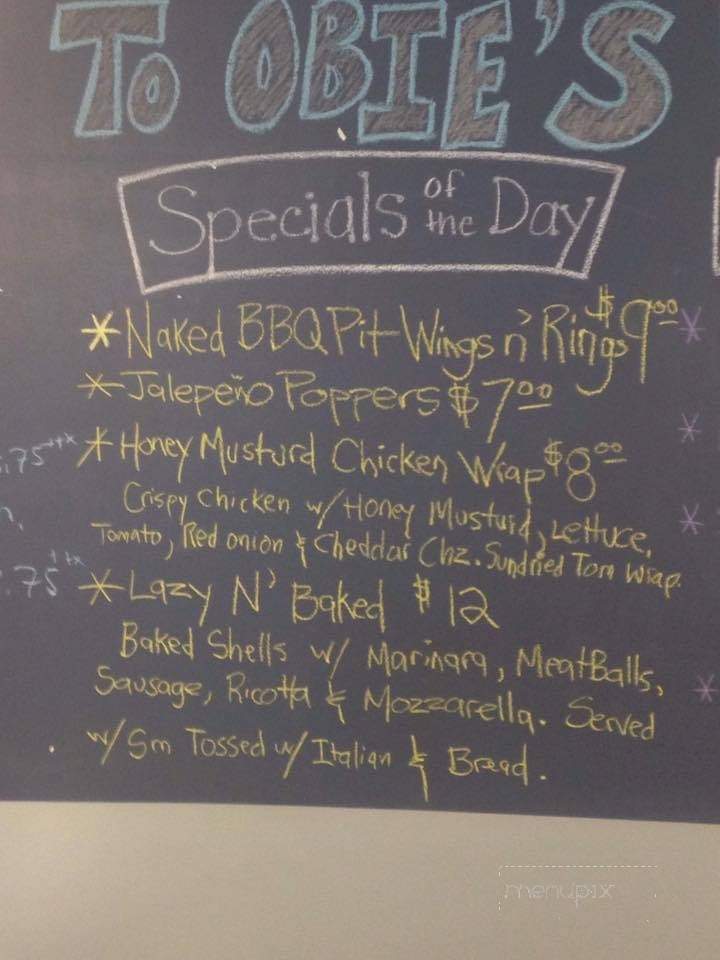 TO OBIE'S
Specials of the Day
* Naked BBQ Pit Wings n' Rings $9.00
* Jalepeño Poppers $7.00
.75 +tx
* Honey Musturd Chicken Wrap $8.00
Crispy Chicken w/ Honey Musturd, Lettuce,
Tomato, Red onion & Cheddar Chz. Sundried Tom Wrap.
.75 +tx
* Lazy N' Baked $12
Baked Shells w/ Marinara, MeatBalls,
Sausage, Ricotta & Mozzarella. Served
w/ Sm Tossed w/ Italian & Bread.
menupix